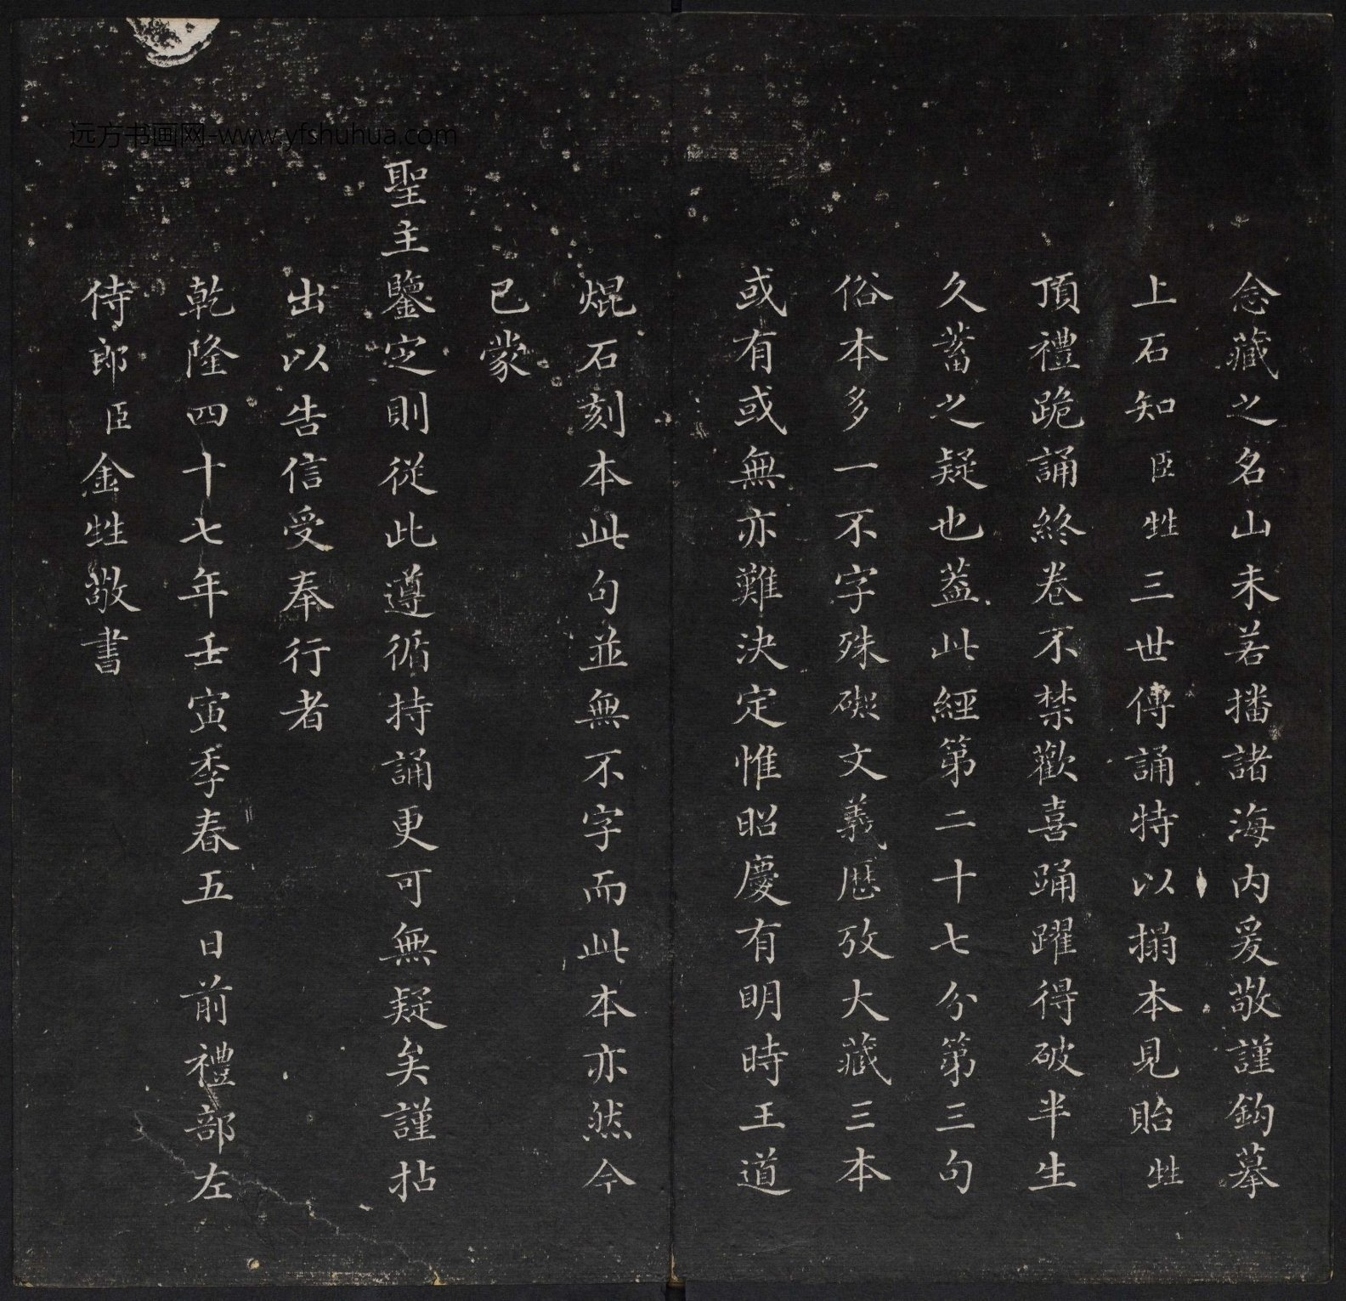 远方书画网-www.yfshuhua.com
念藏之名山未若播諸海內爰敬謹鈎摹
上石知臣甡三世傳誦特以搨本見貽甡
頂禮跪誦終卷不禁歡喜踊躍得破半生
久蓄之疑也葢此經第二十七分第三句
俗本多一不字殊礙文義歷攷大藏三本
或有或無亦難決定惟昭慶有明時王道
焜石刻本此句並無不字而此本亦然今
已蒙
聖主鑒定則從此遵循持誦更可無疑矣謹拈
出以告信受奉行者
乾隆四十七年壬寅季春五日前禮部左
侍郎臣金甡敬書